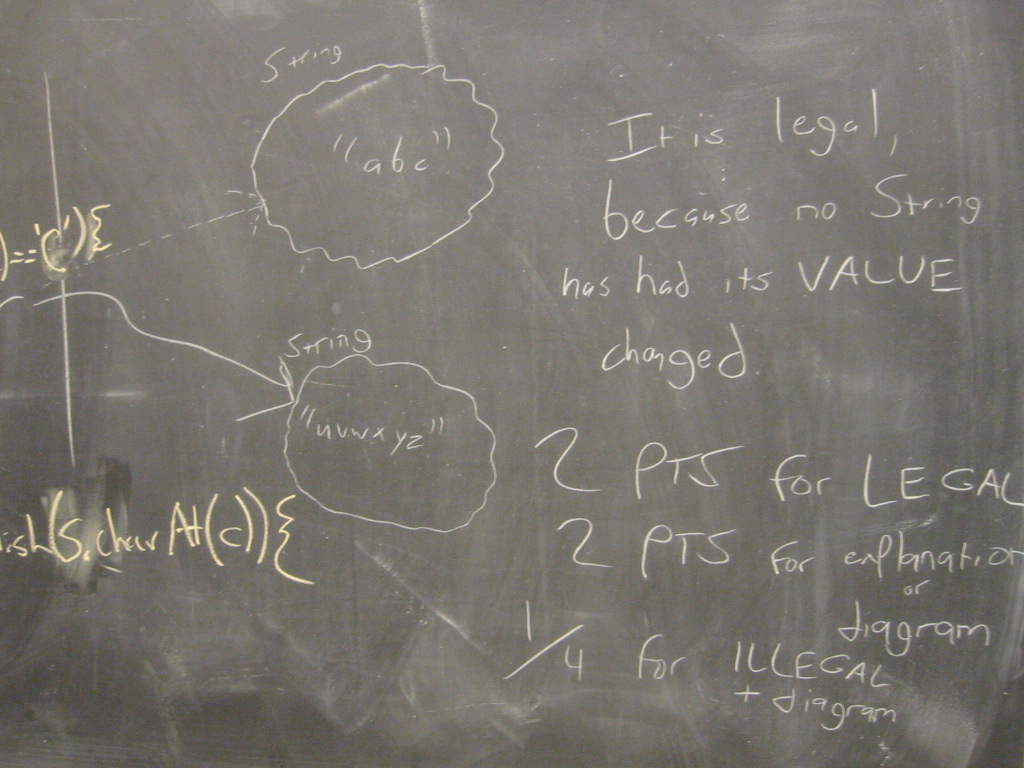 String
"abc"
)=='c'){
String
"uvwxyz"
ish(s.charAt(c)){
It is legal,
because no String
has had its VALUE
changed.
2 PTS for LEGAL
2 PTS for explanation
or
diagram
1/4 for ILLEGAL
+ diagram